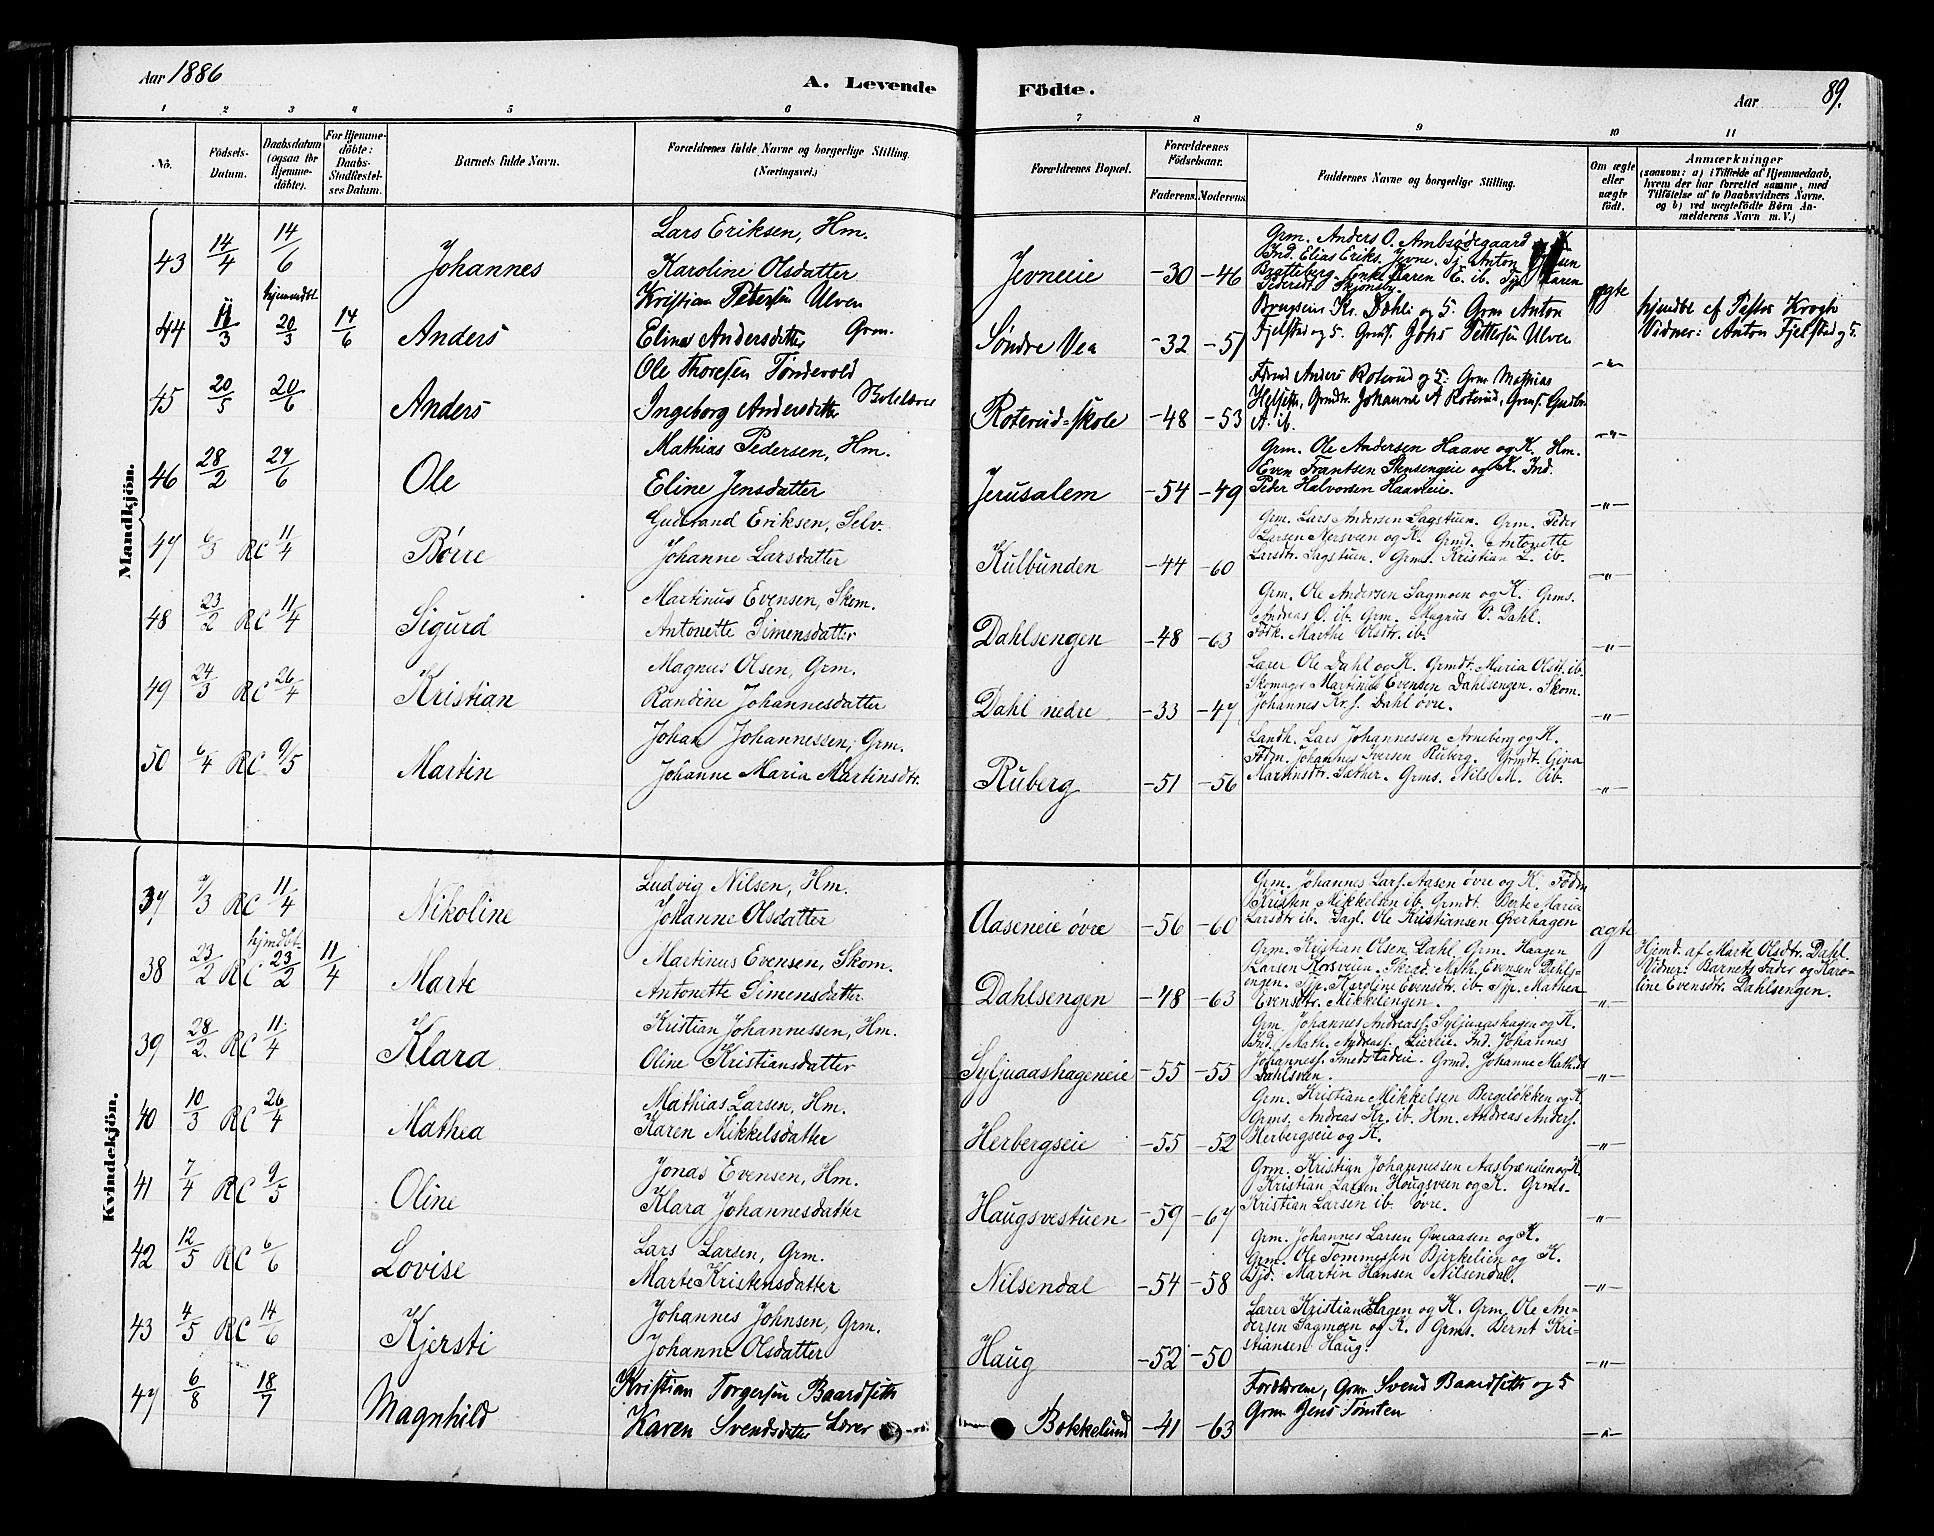 Aar 1886
A. Levende Födte.
Aar 89.
1 2 3 4 5 6 7 8 9 10 11
No.
Födsels-Datum.
Daabsdatum (ogsaa for Hjemme-döbte).
For Hjemme-döbte: Daabs-Stadfæstel-ses Datum.
Barnets fulde Navn.
Forældrenes fulde Navne og borgerlige Stilling. (Næringsvei.)
Forældrenes Bopæl.
Forældrenes Födselsaar.
Faderens. Moderens.
Faddernes Navne og borgerlige Stilling.
Om ægte eller uægte født.
Anmærkninger
(saasom: a) i Tilfælde af Hjemmedaab,
hvem der har forrettet samme, med
Tilföielse af to Daabsvidners Navne,
og b) ved uægtefödte Börn An-
melderens Navn m. V.)
Mandkjön.
43 14/4 14/6 Johannes
Lars Eriksen, Hm.
Karoline Olsdatter
Jevneie -30 -46
Grm. Anders O. Ambsødegaard
Ind. Elias Eriks. Jevne. Tj. Anton
Bratteberg. Enke Karen E. ib. Tjp. Karen
Pedersdt. Skjønsby.
ægte
44 11/3 hjemmdt 20/3 14/6 Anders
Kristian Petersen Ulven
Eline Andersdatter Grm.
Søndre Vea -32 -51
Kr. Dahli og 5. Grm Anton
Fjelstad og 5. Grmf. Johs Pettersen Ulven
-"-
hjmdbt af Pastor Krogh
Vidner: Anton Fjelstad og 5.
45 20/5 20/6 Anders
Ole Thoresen Tøndevold
Ingeborg Andersdatter Skolelærer
Roterud-skole -48 -53
Anders Roterud og 5: Grm Mathias
Helseth, Grmdtr. Johanne A Roterud, Grmf. Gudbr.
A. ib.
-"-
46 28/2 27/6 Ole
Mathias Pedersen, Hm.
Eline Jensdatter
Jerusalem -54 -49
Grm. Ole Andersen Haave og K. Hm.
Even Frantsen Stensengeie og K. Ind.
Peder Halvorsen Haaveie.
-"-
47 6/3 RC 11/4 Børre
Gudbrand Eriksen, Selv.
Johanne Larsdatter
Kulbunden -44 -60
Grm. Lars Andersen Sagstuen. Grm. Peder
Larsen Nersveen og K. Grmd. Antonette
Larsdtr. Sagstuen. Grms. Kristian L. ib.
-"-
48 23/2 RC 11/4 Sigurd
Martinus Evensen, Skom.
Antonette Simensdatter
Dahlsengen -48 -63
Grm. Ole Andersen Sagmoen og K. Grms.
Andreas O. ib. Grm. Magnus O. Dahl.
Födk. Marthe Olsdtr. ib.
-"-
49 24/3 RC 26/4 Kristian
Magnus Olsen, Grm.
Randine Johannesdatter
Dahl nedre -33 -47
Lærer Ole Dahl og K. Grmdt. Maria Olsdt. ib.
Skomager Martinus Evensen Dahlsengen. Skom.
Johannes Kr.s. Dahl øvre.
-"-
50 6/4 RC 9/5 Martin
Johan Johannessen, Grm.
Johanne Maria Martinsdtr.
Ruberg -51 -56
Landh. Lars Johannessen Arneberg og K.
Födm. Johannes Iversen Ruberg. Grmdt. Gina
Martinsdtr. Sæther. Grms. Nils M. ib.
-"-
Kvindekjön.
37 9/3 RC 11/4 Nikoline
Ludvig Nilsen, Hm.
Johanne Olsdatter
Aaseneie øvre -56 -60
Grm. Johannes Lars. Aasen øvre og K. Födm
Kristen Mikkelsen ib. Grmdt. Berte Maria
Larsdtr ib. Dagl. Ole Kristiansen Øverhagen
ægte
38 23/2 RC hjmdbt 23/2 11/4 Marte
Martinus Evensen, Skom.
Antonette Simensdatter
Dahlsengen -48 -63
Grm. Kristian Olsen Dahl. Grm. Haagen
Larsen Korsveien. Skræd. Math. Evensen Dahls-
engen. Tjp. Karoline Evensdtr. ib. Tjp. Mathea
Evensdtr. Mikkelengen.
-"-
Hjemd. af Marte Olsdtr. Dahl.
Vidner: Barnets Fader og Karo-
line Evensdtr. Dahlsengen.
39 28/2. RC 11/4 Klara
Kristian Johannessen, Hm.
Oline Kristiansdatter
Syljuaashageneie -55 -55
Grm. Johannes Andreass. Syljuaashagen og K.
Ind. Math. Andreass. Lierlie. Ind. Johannes
Johanness. Smedstadeie. Grmd. Johanne Math.dt
Dahlsveen.
-"-
40 10/3 RC 26/4 Mathea
Mathias Larsen, Hm.
Karen Mikkelsdatter
Herbergseie -55 -52
Grm. Kristian Mikkelsen Bergeløkken og K
Grms. Andreas Kr. ib. Hm. Andreas Anders.
Herbergseie og K.
-"-
41 7/4 RC 9/5 Oline
Jonas Evensen, Hm.
Klara Johannesdatter
Haugsvestuen -59 -67
Grm. Kristian Johannessen Aasbrænden og K
Kristian Larsen Haugsveen og K. Grms-
Kristian Larsen ib. øvre.
-"-
42 12/5 RC 6/6 Lovise
Lars Larsen, Grm.
Marte Kristensdatter
Nilsendal -54 -58
Grm. Johannes Larsen Øveraasen og K.
Grm. Ole Tommessen Bjerkelien og K.
Gjd. Martin Hansen Nilsendal.
-"-
43 4/5 RC 14/6 Kjersti
Johannes Johnsen, Grm.
Johanne Olsdatter
Haug -52 -50
Lærer Kristian Hagen og K. Grm. Ole An-
dersen Sagmoen og K. Grms. Bernt Kri-
stiansen Haug.
-"-
47 6/8 18/7 Magnhild
Kristian Torgersen Baardseth
Karen Svendsdatter Lærer
Bokkelund -41 -63
Forældrene, Grm Svend Baardseth og 5
Grm Jens Tømten
-"-